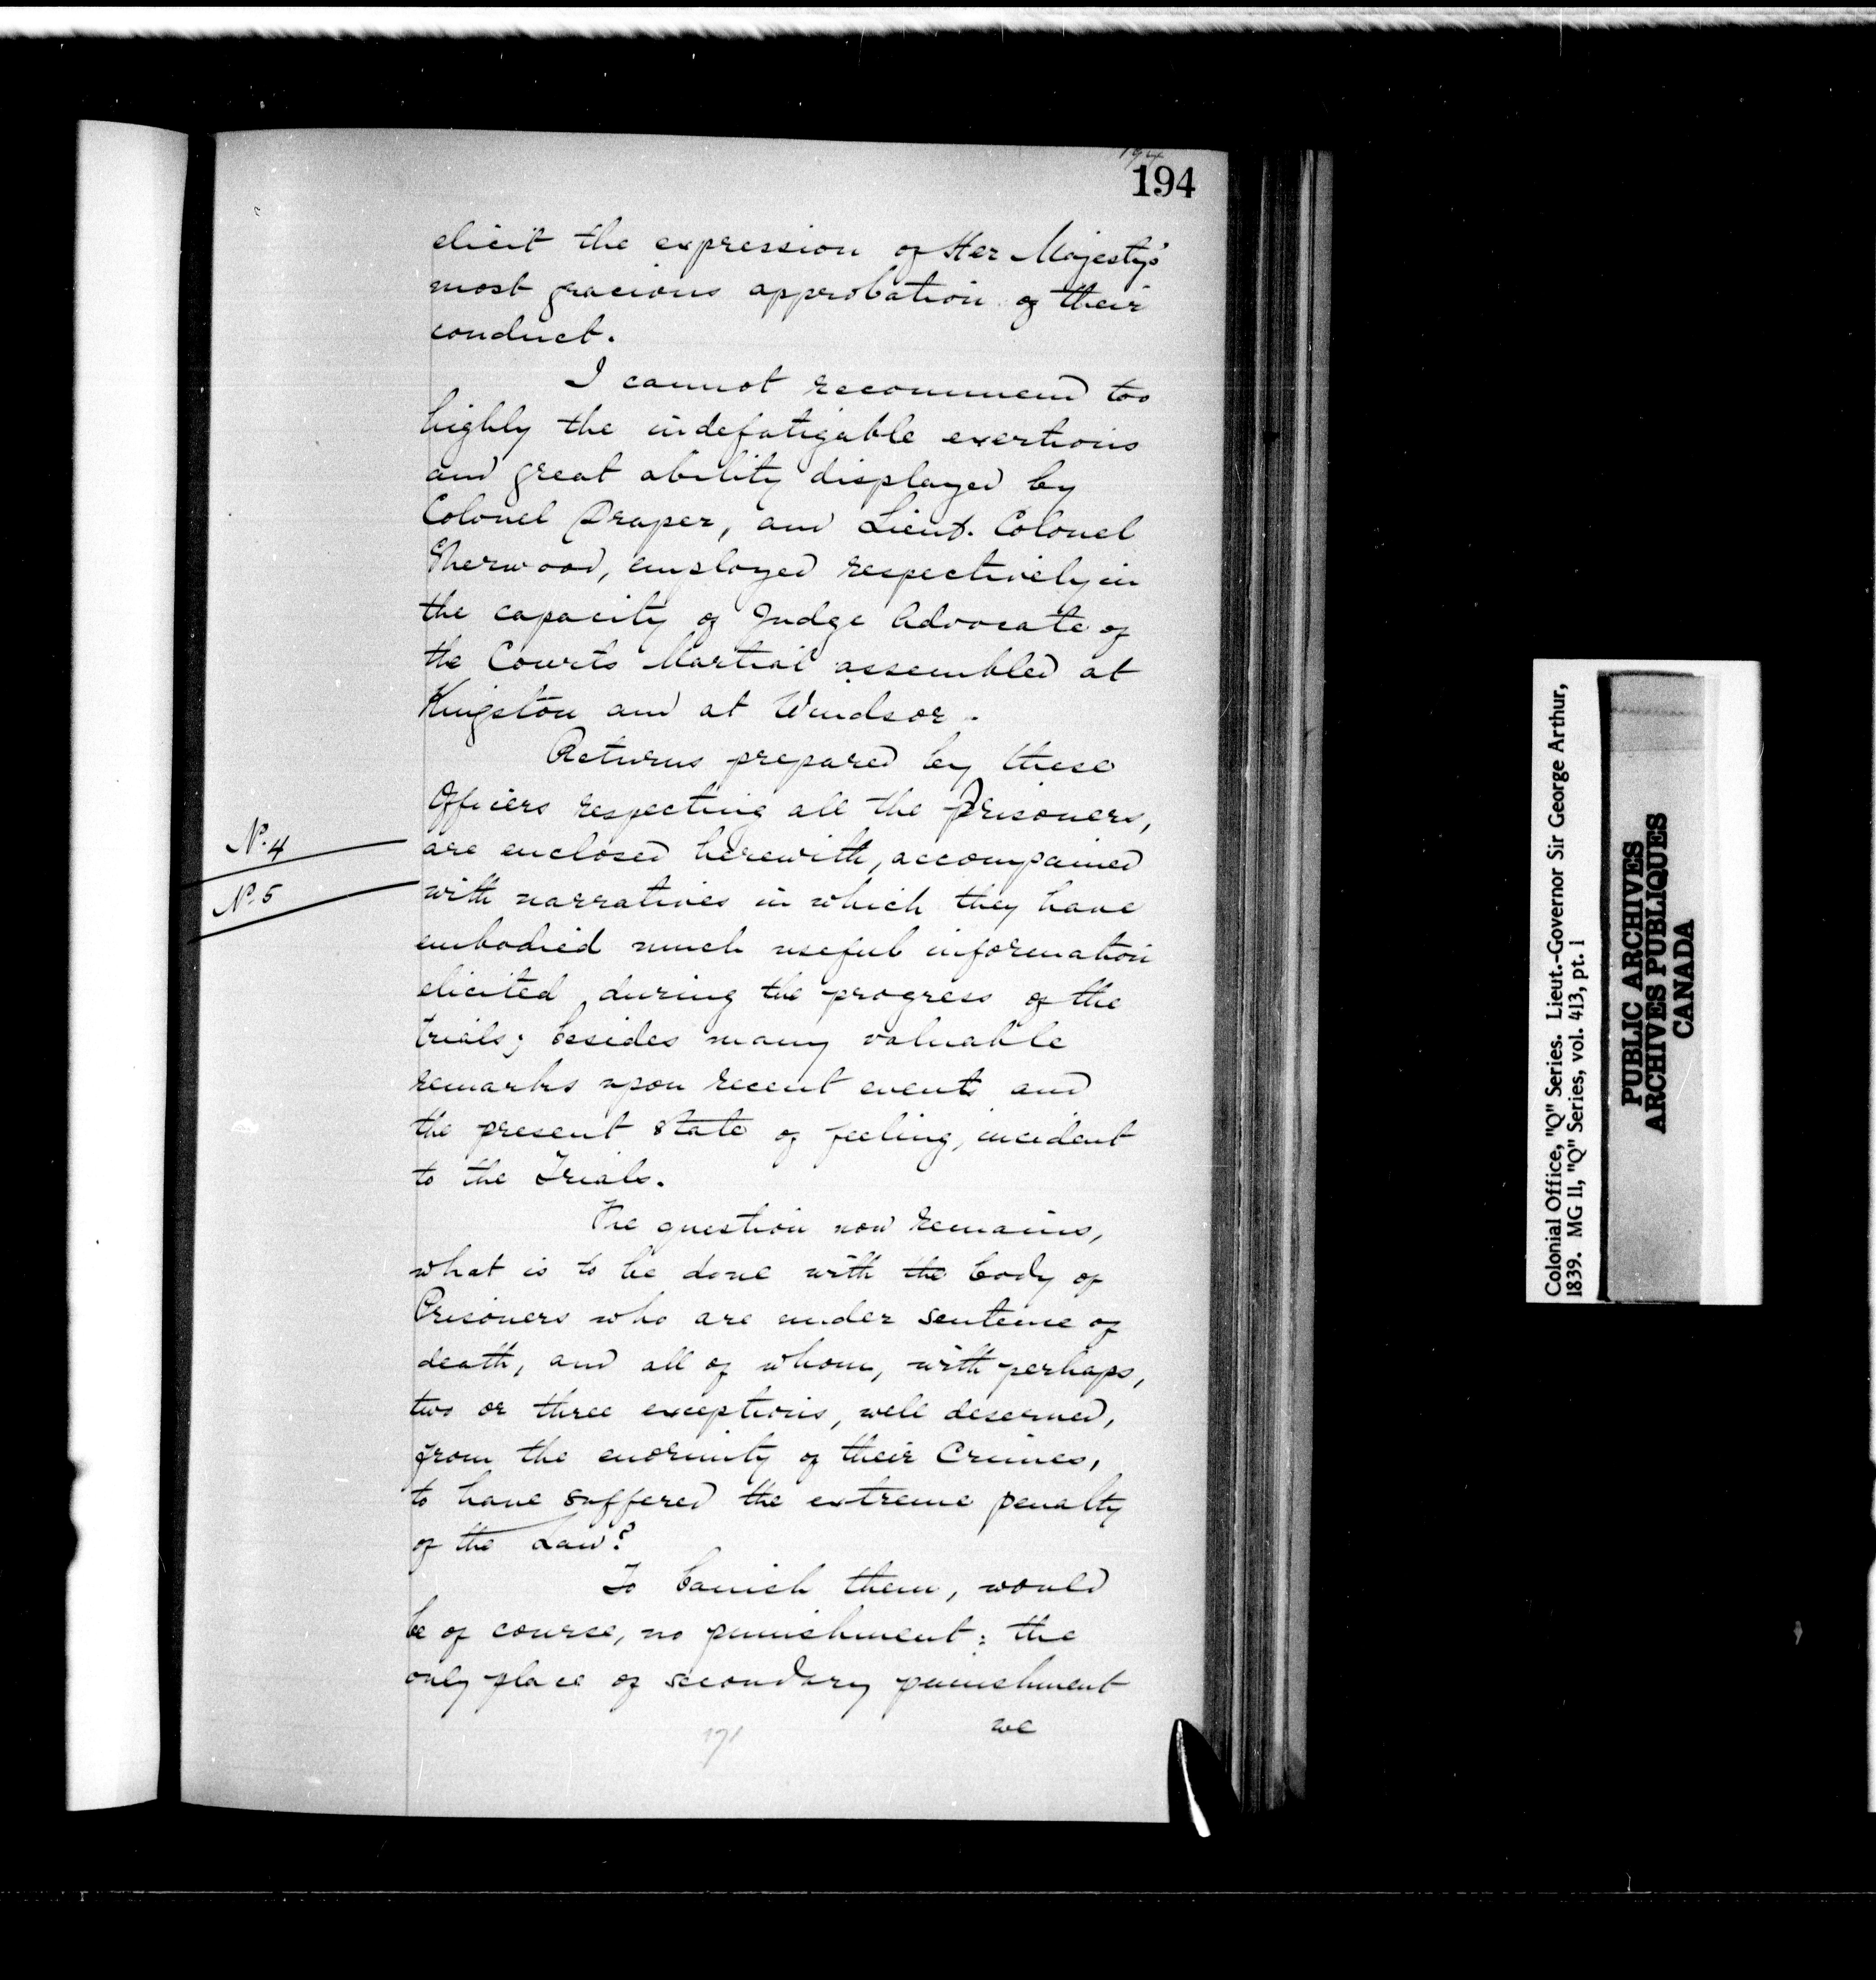 194
194
elicit the expression of Her Majesty's
most gracious approbation of their
conduct.
I cannot recommend too
highly the indefatigable exertions
and great ability displayed by
Colonel Draper, and Lieut. Colonel
Sherwood, employed respectively in
the capacity of Judge Advocate of
the Courts Martial assembled at
Kingston and at Windsor.
Returns prepared by these
Officers respecting all the Prisoners,
No. 4
are enclosed herewith, accompained
No. 5
with narratives in which they have
embodied much useful information
elicited, during the progress of the
trials; besides many valuable
remarks upon recent events and
the present state of feeling, incident
to the Trials.
The question now remains,
what is to be done with the body of
Prisoners who are under sentence of
death, and all of whom, with perhaps,
two or three exceptions, well deserved,
from the enormity of their Crimes,
to have suffered the extreme penalty
of the Law?
To banish them, would
be of course, no punishment: the
only place of secondary punishment
we
171
Colonial Office, "Q" Series. Lieut.-Governor Sir George Arthur,
1839. MG 11, "Q" Series, vol. 413, pt. 1
PUBLIC ARCHIVES
ARCHIVES PUBLIQUES
CANADA